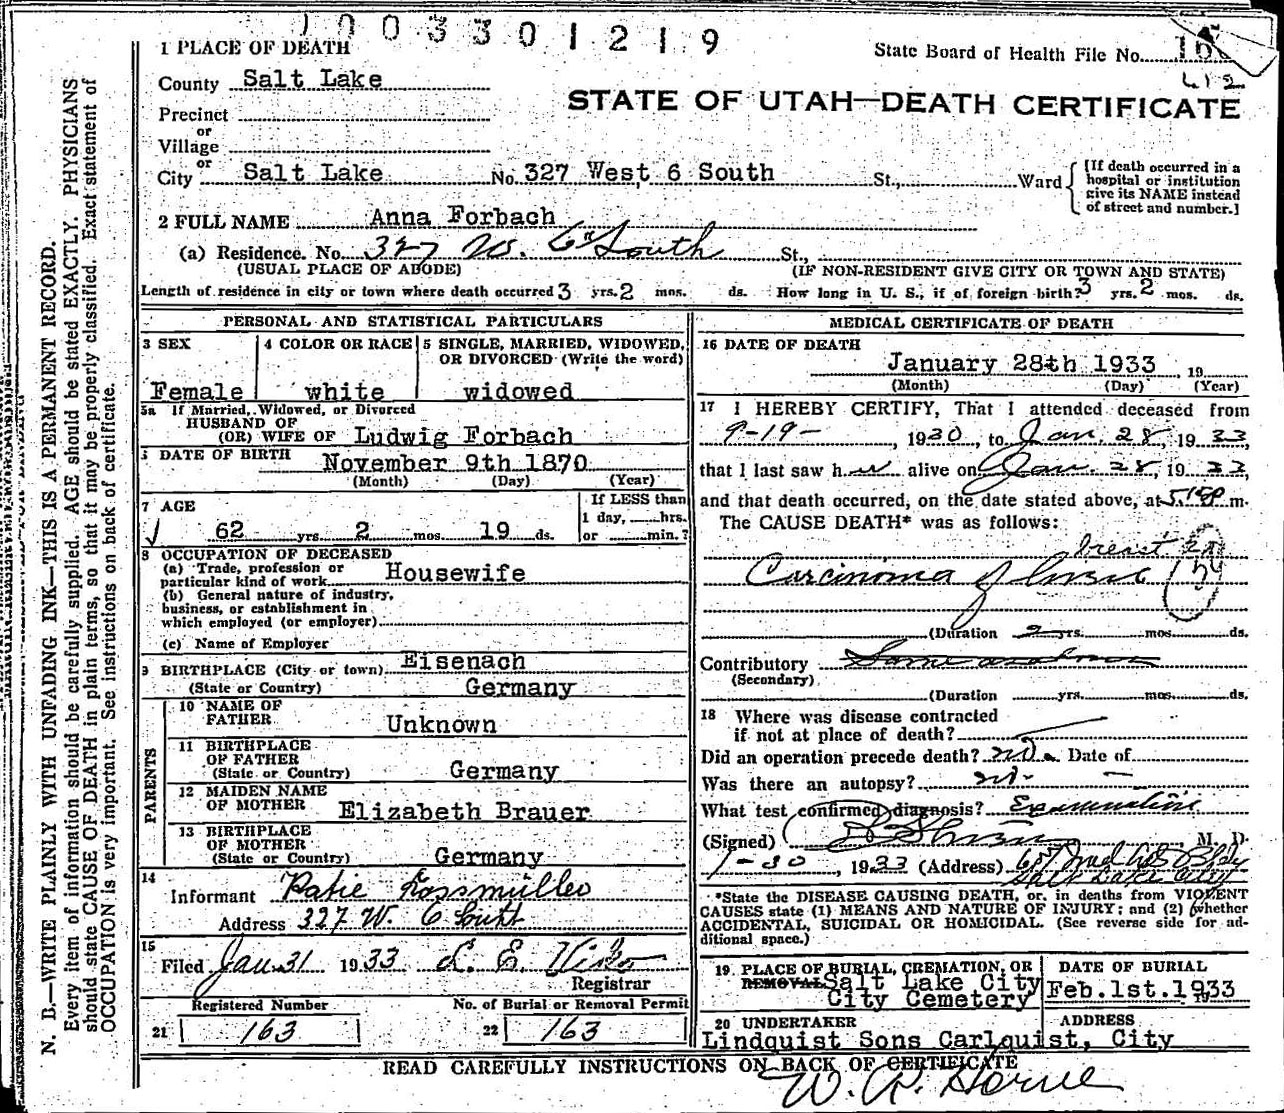 1003301219
1 PLACE OF DEATH
State Board of Health File No.
412
County Salt Lake
STATE OF UTAH—DEATH CERTIFICATE
Precinct
or
Village
or
City Salt Lake No. 327 West 6 South St., Ward
[If death occurred in a hospital or institution give its NAME instead of street and number.]
2 FULL NAME Anna Forbach
(a) Residence. No. 327 W. 6th South St.,
(USUAL PLACE OF ABODE) (IF NON-RESIDENT GIVE CITY OR TOWN AND STATE)
Length of residence in city or town where death occurred 3 yrs. 2 mos. ds. How long in U. S., if of foreign birth? 3 yrs. 2 mos. ds.
PERSONAL AND STATISTICAL PARTICULARS
3 SEX
Female
4 COLOR OR RACE
white
5 SINGLE, MARRIED, WIDOWED, OR DIVORCED (Write the word)
widowed
5a If Married, Widowed, or Divorced
HUSBAND OF
(OR) WIFE OF Ludwig Forbach
DATE OF BIRTH November 9th 1870
(Month) (Day) (Year)
7 AGE
62 yrs. 2 mos. 19 ds.
If LESS than
1 day, hrs.
or min.?
8 OCCUPATION OF DECEASED
(a) Trade, profession or
particular kind of work Housewife
(b) General nature of industry,
business, or establishment in
which employed (or employer)
(c) Name of Employer
9 BIRTHPLACE (City or town) Eisenach
(State or Country) Germany
PARENTS
10 NAME OF
FATHER Unknown
11 BIRTHPLACE
OF FATHER
(State or Country) Germany
12 MAIDEN NAME
OF MOTHER Elizabeth Brauer
13 BIRTHPLACE
OF MOTHER
(State or Country) Germany
14
Informant Katie Rossmüller
Address 327 W. 6 South
15
Filed Jan. 31 1933 L. E. Viko
Registrar
Registered Number No. of Burial or Removal Permit
21 163 22 163
MEDICAL CERTIFICATE OF DEATH
16 DATE OF DEATH
January 28th 1933, 19
(Month) (Day) (Year)
17 I HEREBY CERTIFY, That I attended deceased from
9-19-, 1930, to Jan. 28, 1933,
that I last saw her alive on Jan. 28, 1933,
and that death occurred, on the date stated above, at m.
The CAUSE DEATH* was as follows:
breast
Carcinoma of
(Duration 2 yrs. mos. ds.
Contributory
(Secondary)
(Duration yrs. mos. ds.
18 Where was disease contracted
if not at place of death?
Did an operation precede death? no. Date of
Was there an autopsy? no.
What test confirmed diagnosis? Examination
(Signed) M. D.
1-30, 1933 (Address)
Salt Lake City
*State the DISEASE CAUSING DEATH, or, in deaths from VIOLENT
CAUSES state (1) MEANS AND NATURE OF INJURY; and (2) whether
ACCIDENTAL, SUICIDAL OR HOMICIDAL. (See reverse side for ad-
ditional space.)
19 PLACE OF BURIAL, CREMATION, OR
REMOVAL Salt Lake City
City Cemetery
DATE OF BURIAL
Feb. 1st. 1933
20 UNDERTAKER ADDRESS
Lindquist Sons Carlquist, City
READ CAREFULLY INSTRUCTIONS ON BACK OF CERTIFICATE
W. R. Horne
N. B.—WRITE PLAINLY WITH UNFADING INK—THIS IS A PERMANENT RECORD.
Every item of information should be carefully supplied. AGE should be stated EXACTLY. PHYSICIANS
should state CAUSE OF DEATH in plain terms, so that it may be properly classified. Exact statement of
OCCUPATION is very important. See instructions on back of certificate.